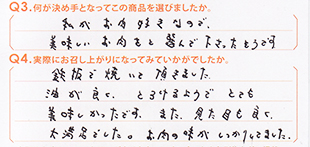 Q3.何が決め手となってこの商品を選びましたか。
私がお肉好きなので、
美味しいお肉をと選んで下さったそうです
Q4.実際にお召し上がりになってみていかがでしたか。
鉄板で焼いて頂きました。
油が良く、とろけるようで とても
美味しかったです。また、見た目も良く、
大満足でした。お肉の味がしっかりしてました。